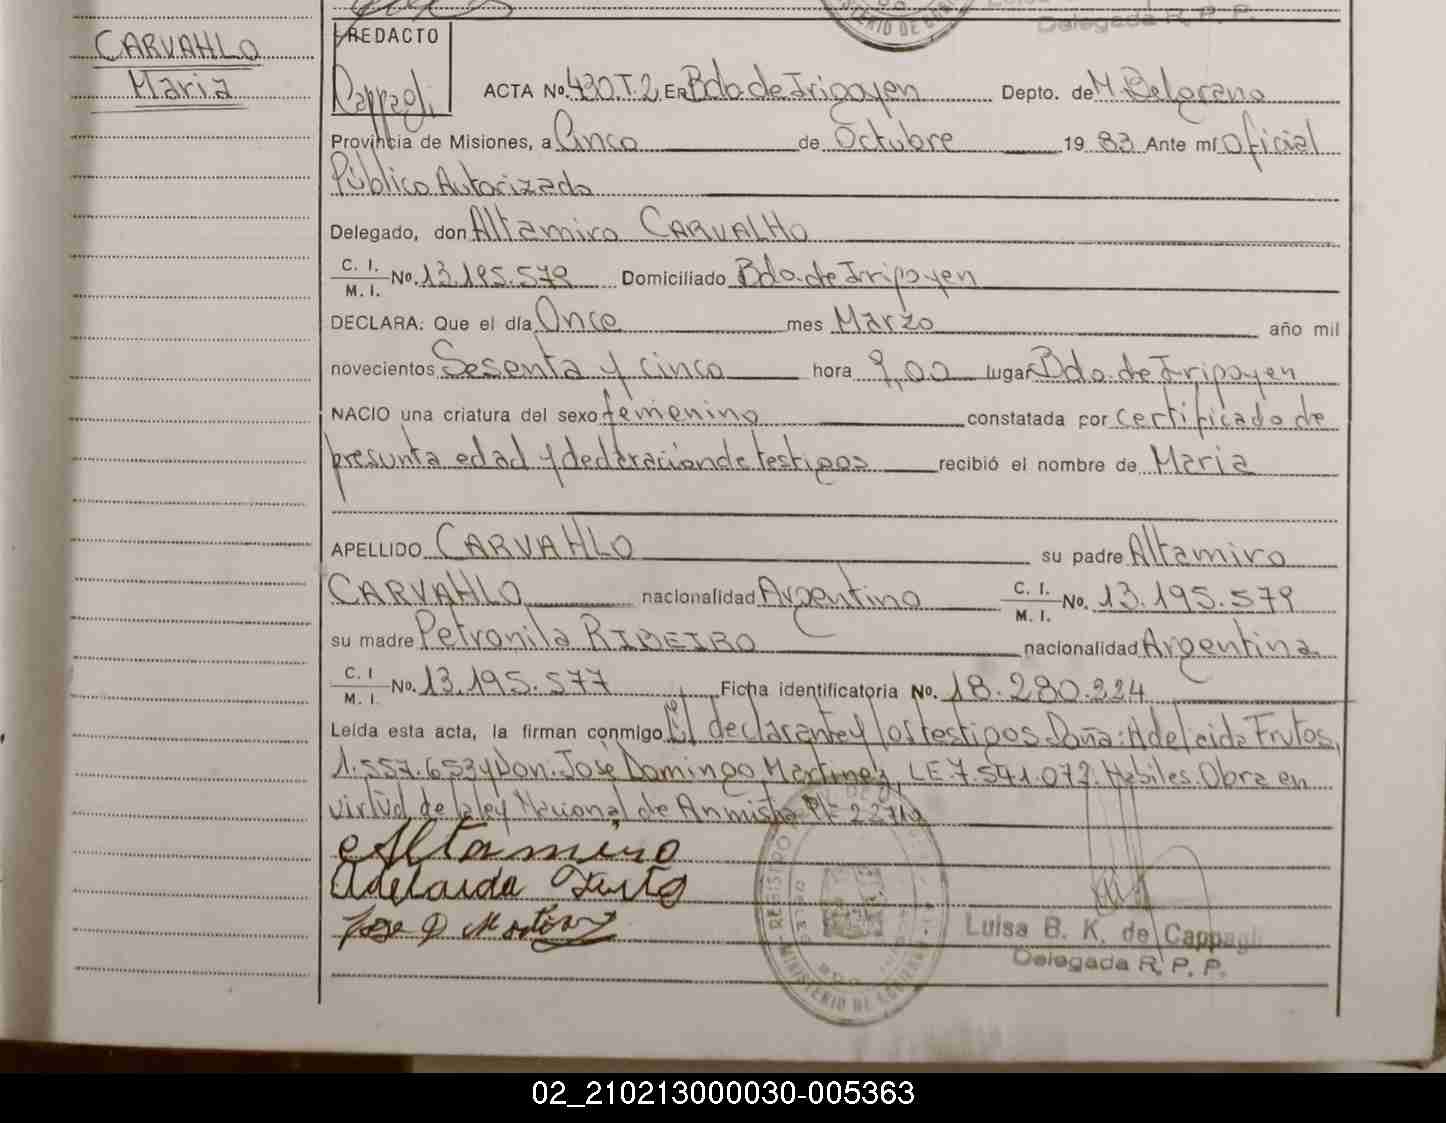 CARVAHLO
Maria
REDACTO
Cappagli
Delegada R. P. P.
ACTA Nº 430.T.2 EN Bdo de Irigoyen Depto. de M. Belgrano
Provincia de Misiones, a Cinco de Octubre 19 83 Ante mí Oficial
Público Autorizado
Delegado, don Altamiro CARVALHO
C. I.
M. I. No. 13.195.579 Domiciliado Bdo. de Irigoyen
DECLARA: Que el día Once mes Marzo año mil
novecientos Sesenta y cinco hora 9,00 lugar Bdo. de Irigoyen
NACIO una criatura del sexo femenino constatada por certificado de
presunta edad y declaración de testigos recibió el nombre de Maria
APELLIDO CARVAHLO su padre Altamiro
CARVAHLO nacionalidad Argentino C. I. M. I. No. 13.195.579
su madre Petronila RIBEIRO nacionalidad Argentina
C. I M. I. No. 13.195.577 Ficha identificatoria No. 18.280.224
Leída esta acta, la firman conmigo El declarante y los testigos Doña: Adeleida Frutos,
1.557.653 y Don. José Domingo Martinez, LE 7.541.073. Hábiles. Obra en
virtud de la ley Nacional de Anmistia Nº 22710
Altamiro
Adelaida Fruto
Jose D Martinez
REGISTRO
MINISTERIO DE GOBIERNO
Luisa B. K. de Cappagli
Delegada R. P. P.
02_210213000030-005363